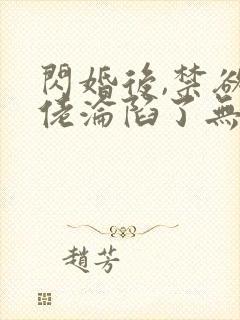 閃婚後,禁欲
佬淪陷了無
趙芳